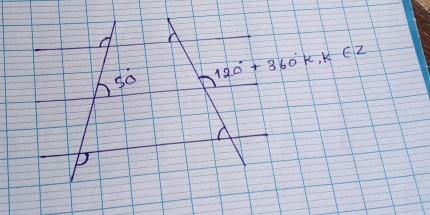 50°
120° + 360°K, K ∈ Z